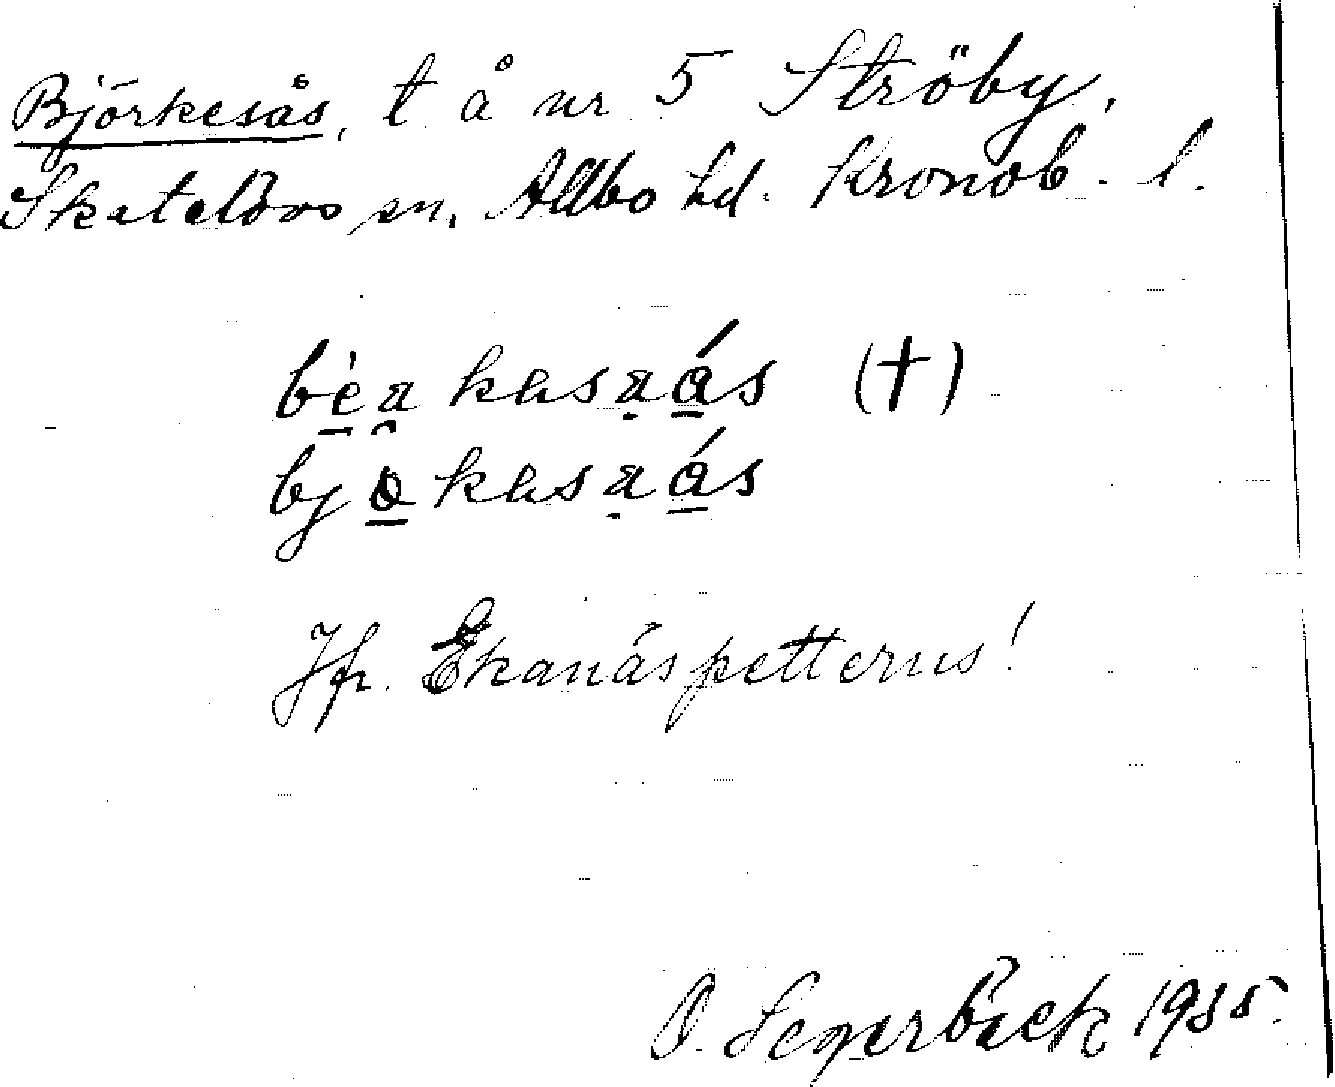 Björkesås, t å nr 5 Ströby,
Skatelövs sn, Allbo hd. Kronob. l.
bèa kɯsaás (†)
bjo kɯsaás
Jfr. Ekanäspetterus!
O. Segerbäck 1935.